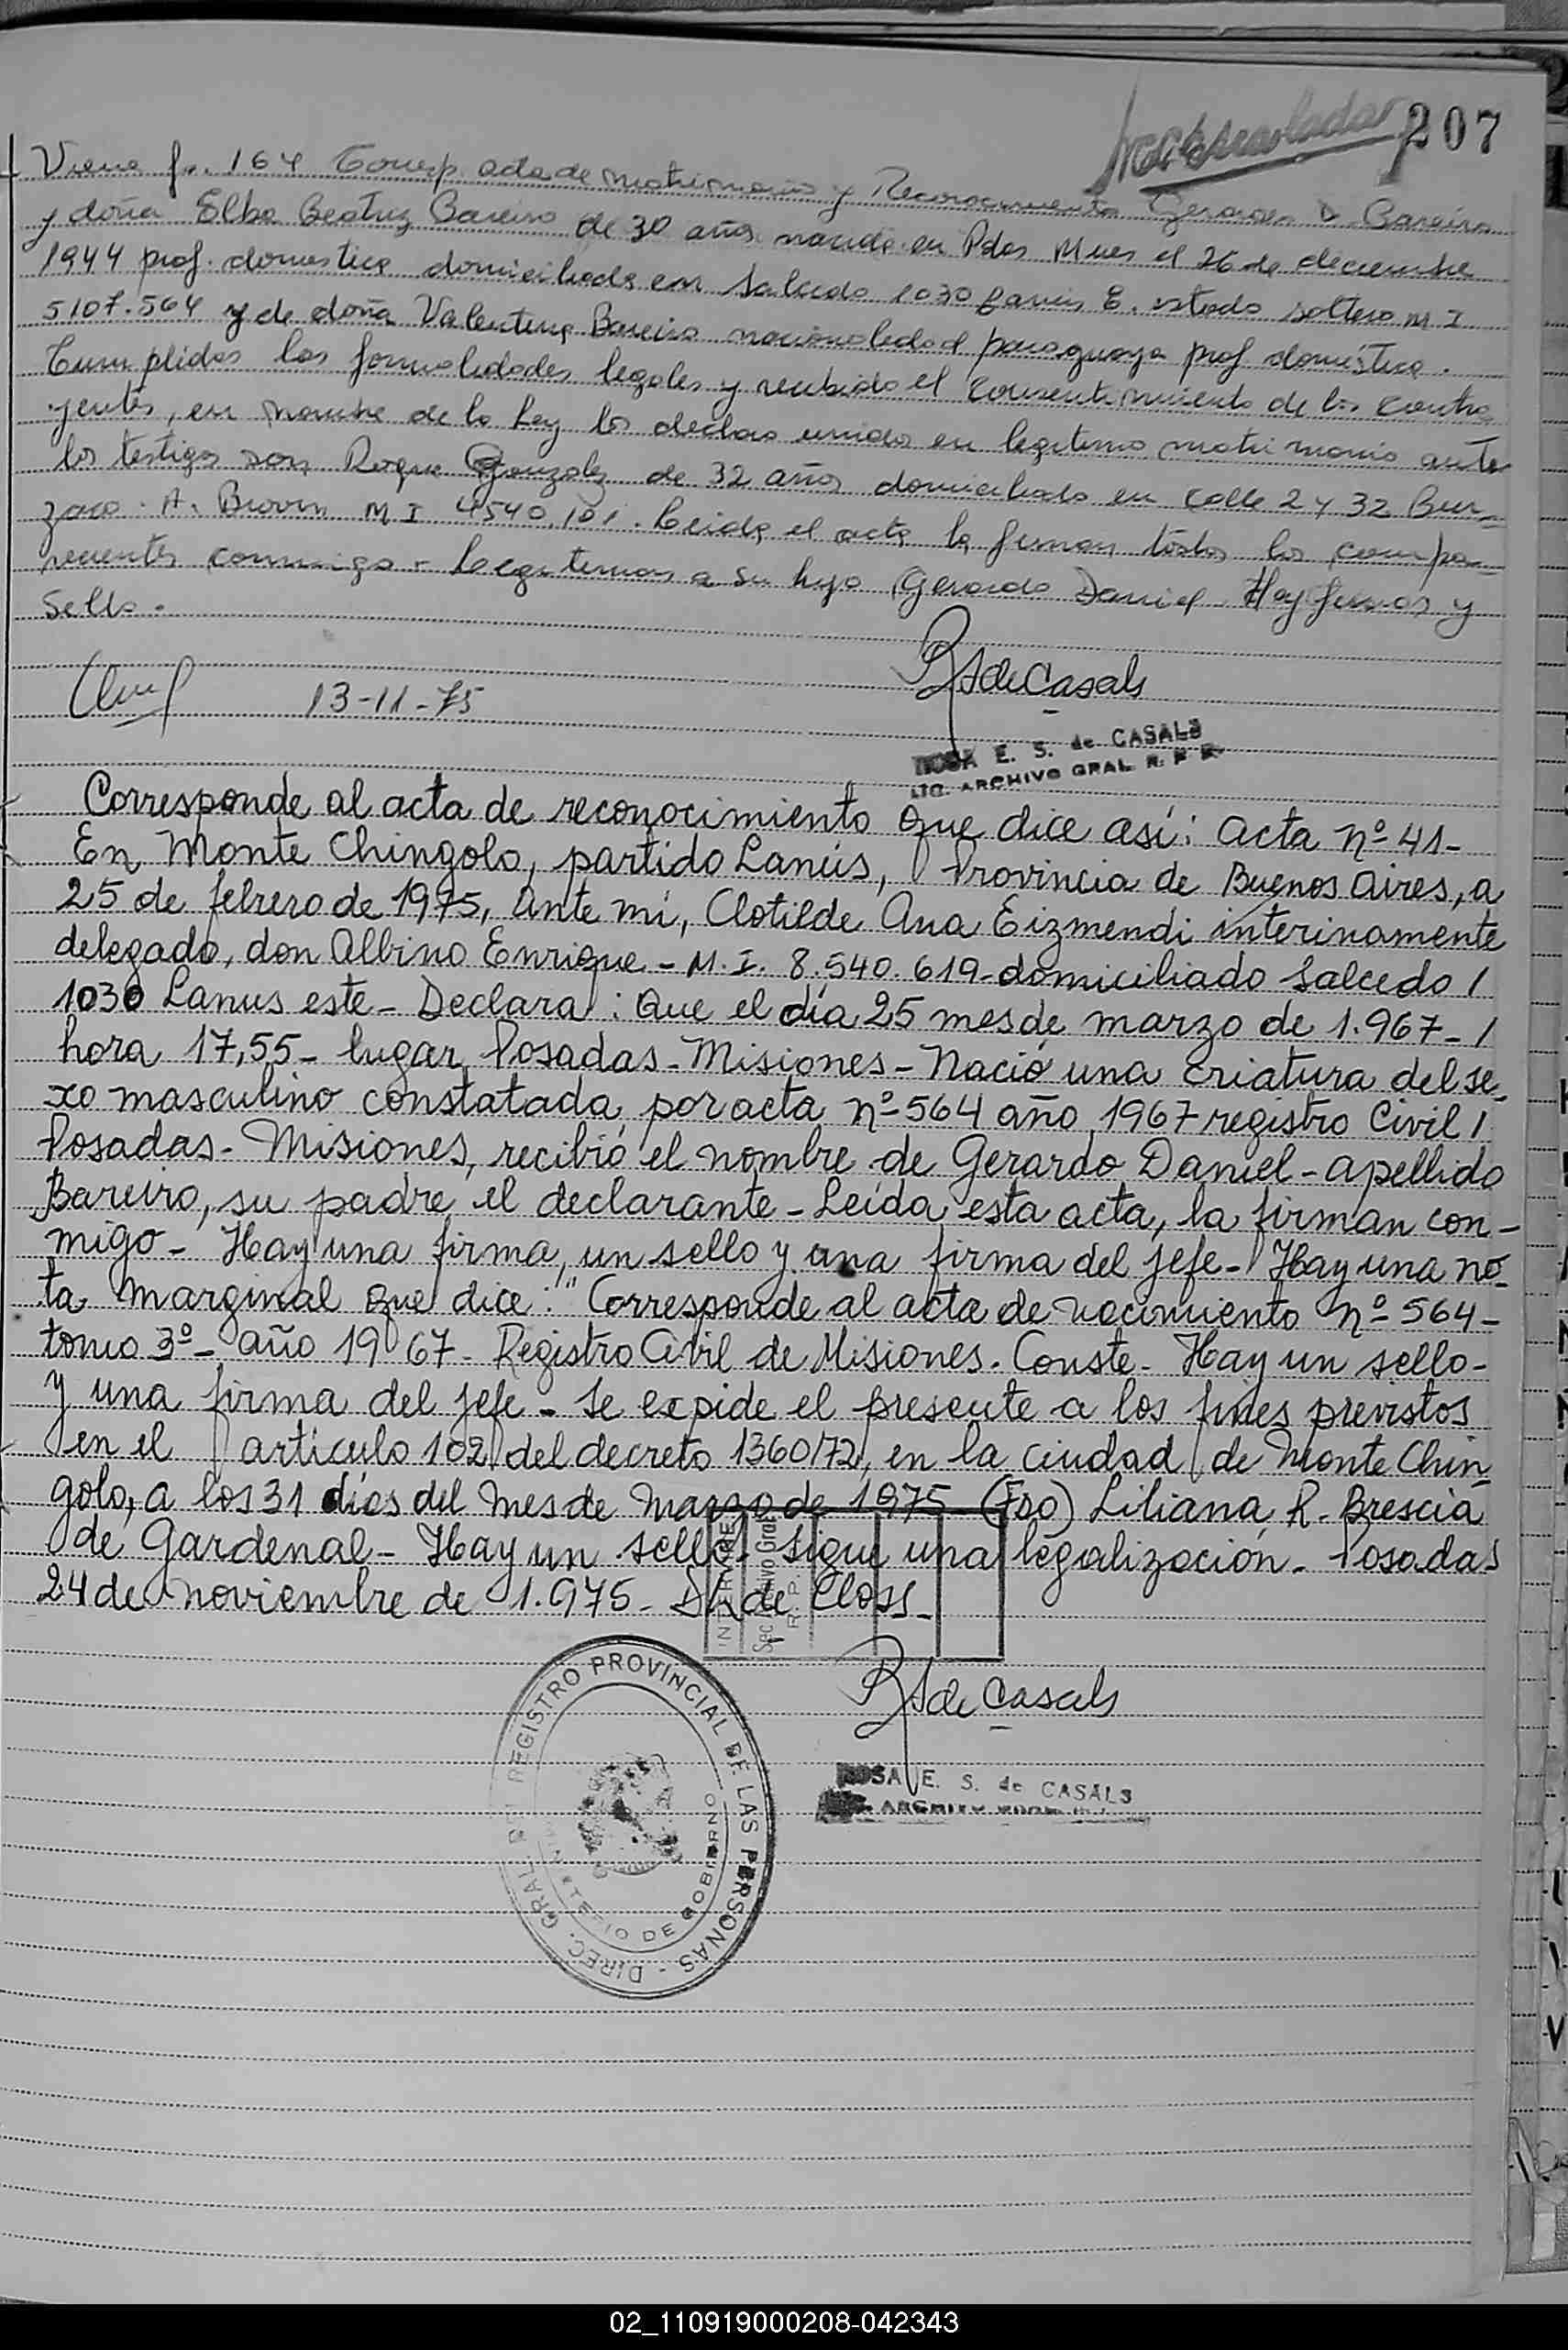 207
Viene fs. 164 Corresp. acta de matrimonio y Reconocimiento Gerardo D. Bareiro
y doña Elba Beatriz Bareiro de 30 años nacida en Pdas Mnes el 26 de diciembre
1944 prof. domestica domiciliada en Salcedo 1030 Lanús E. estado soltera M I
5107.564 y de doña Valentina Bareiro nacionalidad paraguaya prof doméstica.
Cumplidas las formalidades legales y recibido el consentimiento de los contra
yentes, en nombre de la Ley los declaro unidos en legitimo matrimonio ante
los testigos son Roque Gonzalez de 32 años domiciliado en calle 2 y 32 Bur-
zaco. A. Brown M I 4540.101. Leida el acta la firman todos los compa-
recientes conmigo - Legitiman a su hijo Gerardo Daniel Hay firmas y
Sello.
13-11-75
RSdeCasals
ROSA E. S. de CASALS
ARCHIVO GRAL. R. P. P.
Corresponde al acta de reconocimiento que dice así: acta nº 41-
En Monte Chingolo, partido Lanús, Provincia de Buenos Aires, a
25 de febrero de 1975, Ante mí, Clotilde Ana Eizmendi interinamente
delegado, don Albino Enrique - M. I. 8.540.619 - domiciliado Salcedo /
1030 Lanus este - Declara: Que el día 25 mes de marzo de 1.967 - /
hora 17,55 - lugar Posadas - Misiones - Nació una criatura del se-
xo masculino constatada por acta nº 564 año 1967 registro Civil /
Posadas - Misiones, recibió el nombre de Gerardo Daniel - apellido
Bareiro, su padre el declarante - Leída esta acta, la firman con-
migo - Hay una firma, un sello y una firma del jefe - Hay una no-
ta marginal que dice: "Corresponde al acta de nacimiento nº 564 -
tomo 3º - año 1967 - Registro Civil de Misiones. Conste - Hay un sello -
y una firma del jefe - Se expide el presente a los fines previstos
en el artículo 102 del decreto 1360/72, en la ciudad de Monte Chin
golo, a los 31 días del mes de Marzo de 1975 (Fdo) Liliana R. Brescia
de Gardenal - Hay un sello - Sigue una legalización - Posadas
24 de noviembre de 1.975 - de Closs -
RSdeCasals
ROSA E. S. de CASALS
DIREC. GRAL. DEL REGISTRO PROVINCIAL DE LAS PERSONAS -
MINISTERIO DE GOBIERNO
02_110919000208-042343